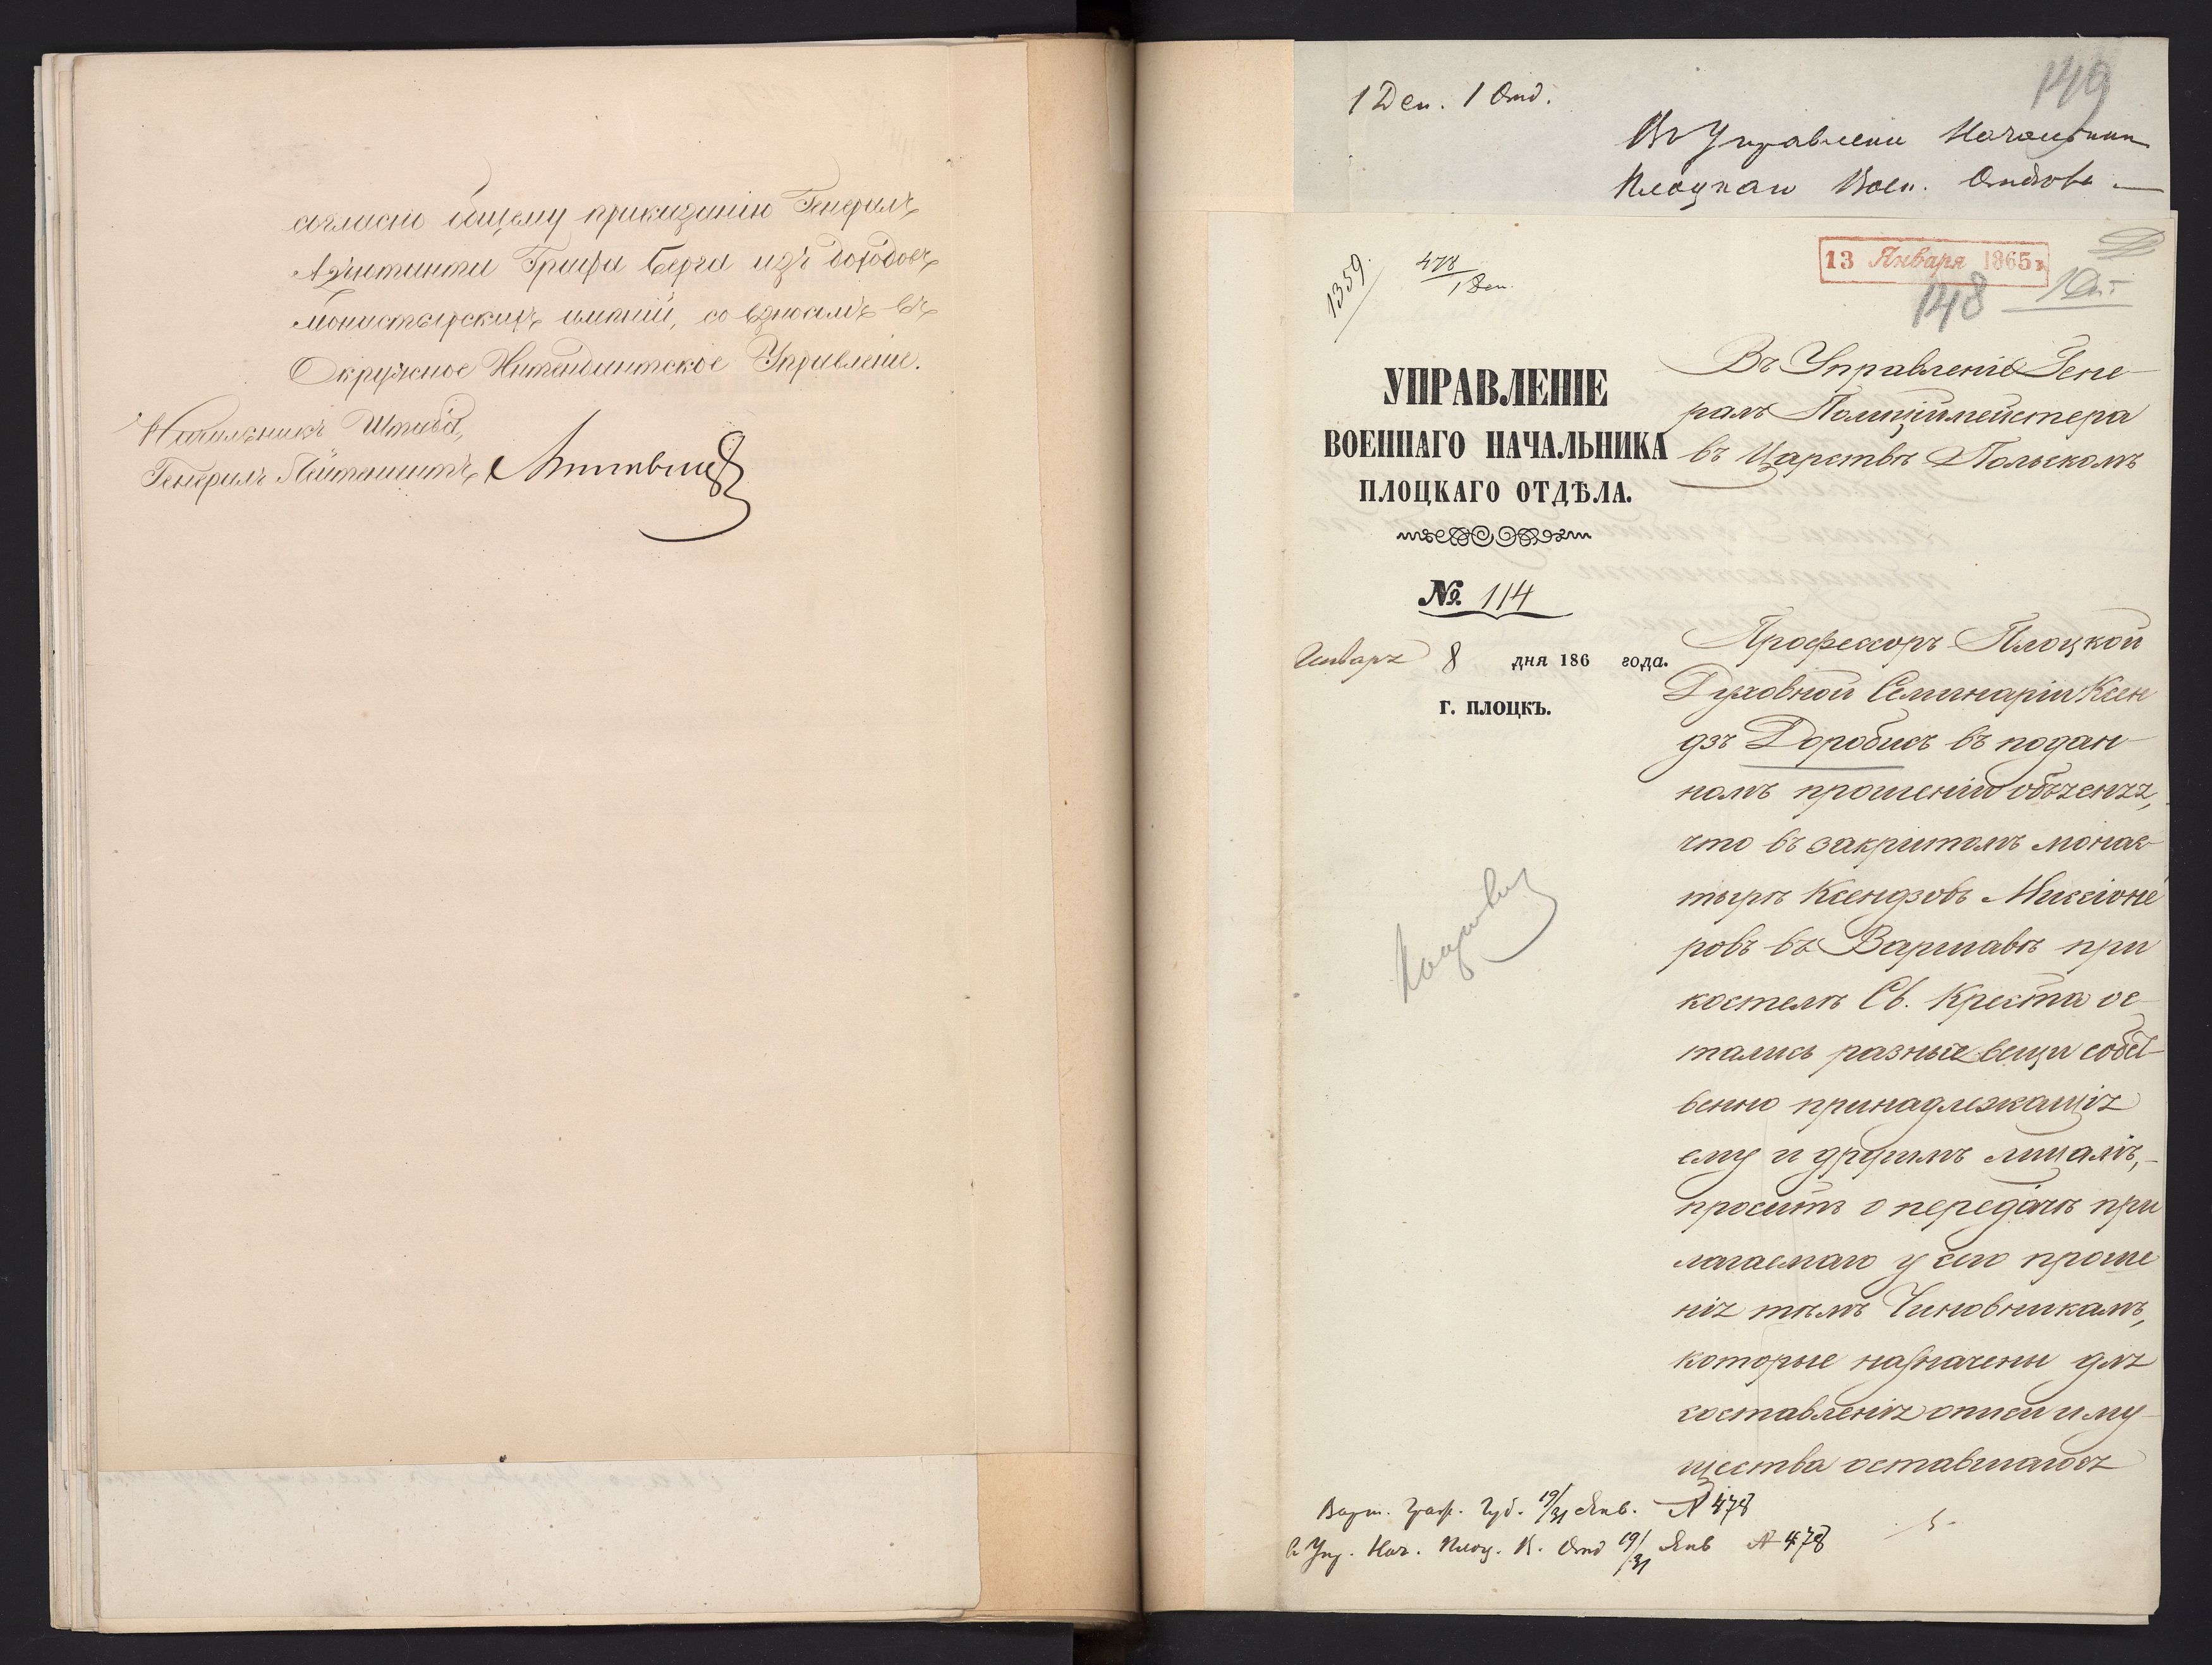 согласно общему приказанію Генералъ
Адъютанта Графа Берга изъ доходовъ
монастырскихъ имѣній, со взносомъ въ
Окружное Интендантское Управленіе.
Начальникъ Штаба,
Генералъ Лейтенантъ
149
1 Деп. 1 Отд.
Въ Управленіе Начальника
Плоцкаго Воен. Отдѣла
1359
478
1 Деп.
13 Января 1865 г.
148
УПРАВЛЕНІЕ
ВОЕННАГО НАЧАЛЬНИКА
ПЛОЦКАГО ОТДѢЛА.
№ 114
Января 8 дня 186 года.
г. ПЛОЦКЪ.
Въ Управленіе Гене-
ралъ Полиціймейстера
въ Царствѣ Польскомъ
Профессоръ Плоцкой
Духовной Семинаріи Ксен
дзъ Доробисъ въ подан-
номъ прошеніи объяснъя,
что въ закритомъ монас-
тырѣ Ксендзовъ Миссіоне
ровъ въ Варшавѣ при
костелѣ Св. Креста ос-
тались разные вещи собст-
венно принадлежащія
ему и другимъ лицамъ, -
проситъ о передачѣ при
лагаемаго у сего проше
нія тѣмъ Чиновникамъ,
которые назначены для
составленія описи иму-
щества оставшагося
Варш. Граж. Губ. 19/31 Янв. № 478
в Упр. Нач. Плоц. В. Отд 19/31 Янв № 478